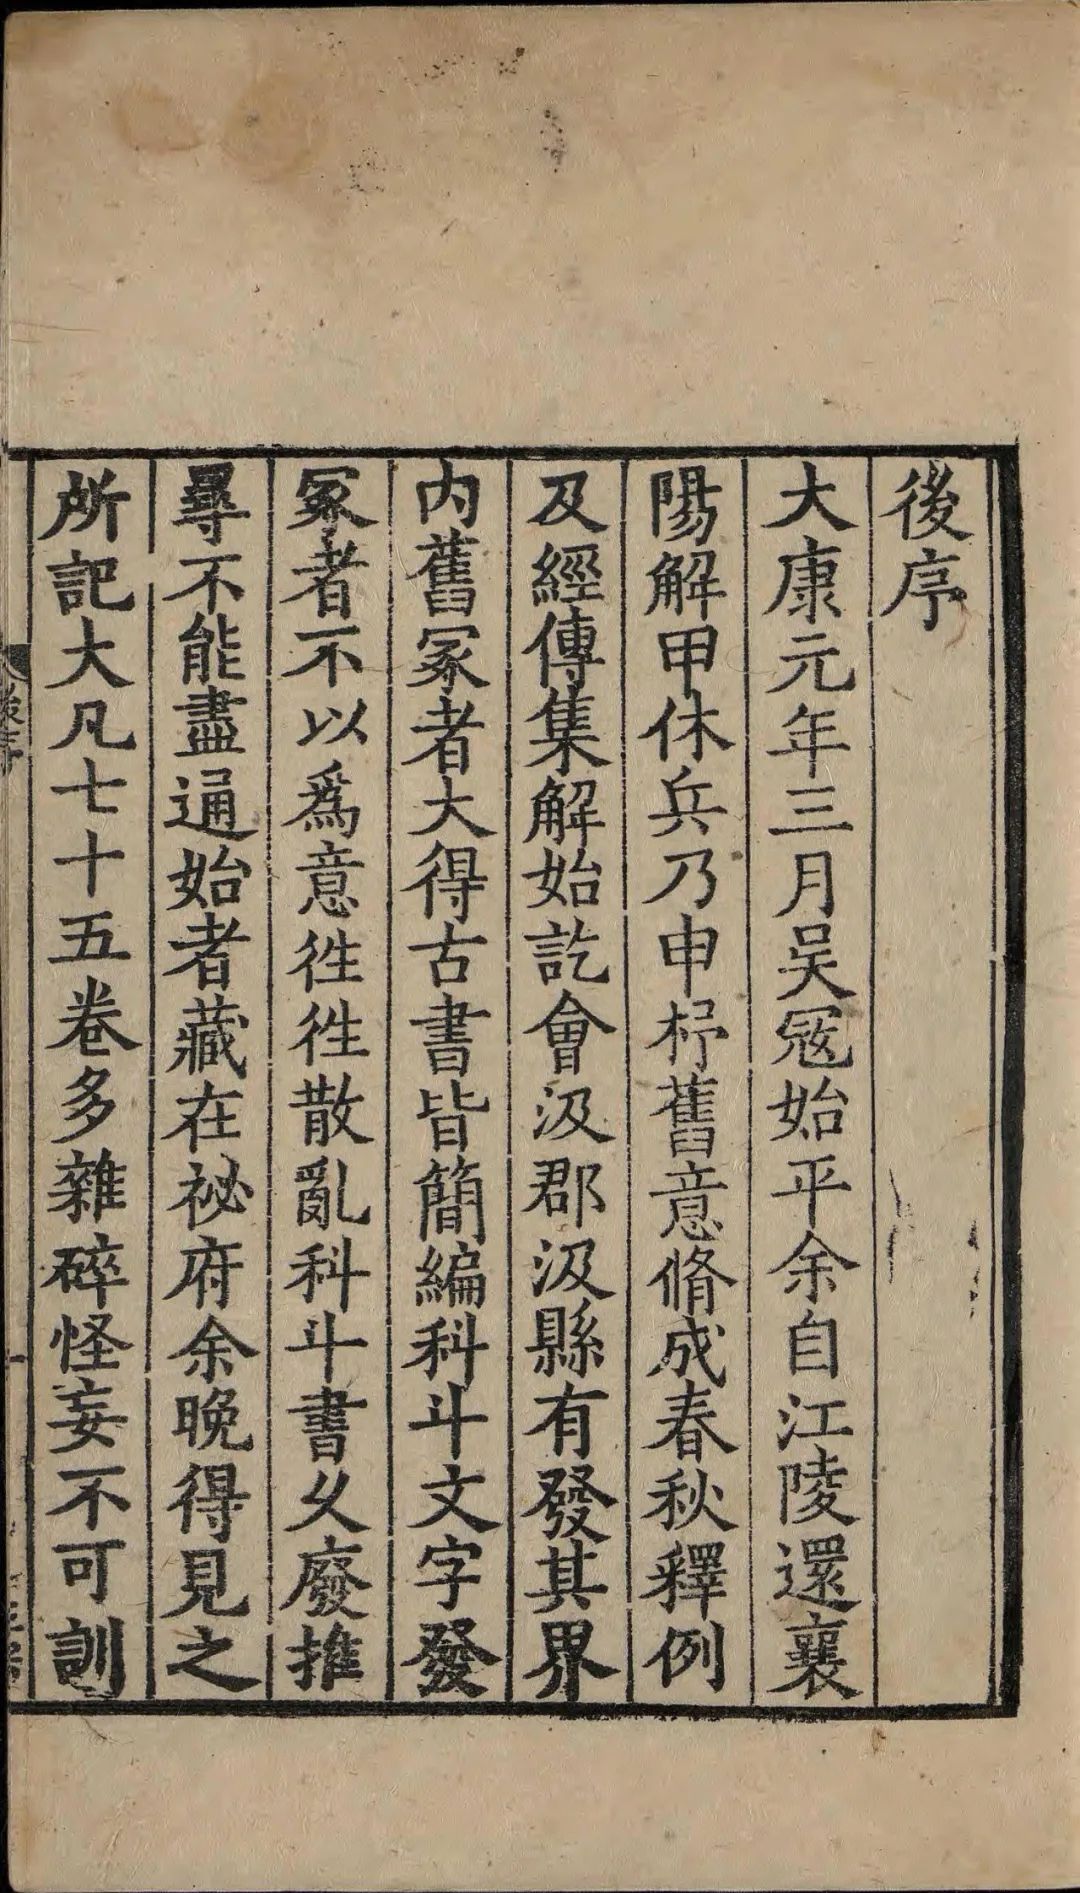 後序
大康元年三月吳寇始平余自江陵還襄
陽解甲休兵乃申杼舊意脩成春秋釋例
及經傳集解始訖會汲郡汲縣有發其界
内舊冢者大得古書皆簡編科斗文字發
冢者不以爲意徃徃散亂科斗書乆廢推
尋不能盡通始者藏在祕府余晚得見之
所記大凡七十五卷多雜碎怪妄不可訓